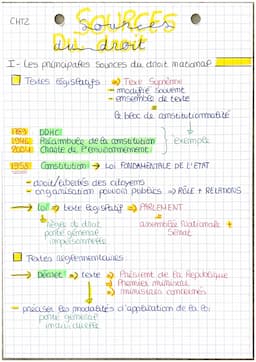 CHT2
SOURCES
Sources
du droit
I - Les principales sources du droit national
Textes législatifs → Texte Suprême
- modifié souvent
- ensemble de texte
le bloc de constitutionnalité
1789 DDHC
1946 Préambule de la constitution
2004 Charte de l'environnement
Exemple
1958 Constitution → LOI FONDAMENTALE DE L'ETAT
- droit/libertés des citoyens
- organisation pouvoirs publics → RÔLE + RELATIONS
→ Loi → texte législatif → PARLEMENT
règle de droit
portée général
impersonnelle
assemblée nationale +
Sénat
Textes réglementaires
→ Décret → texte → Président de la République
→ Premier ministre
→ ministres concernés
- préciser les modalités d'application de la loi
portée général
individuelle